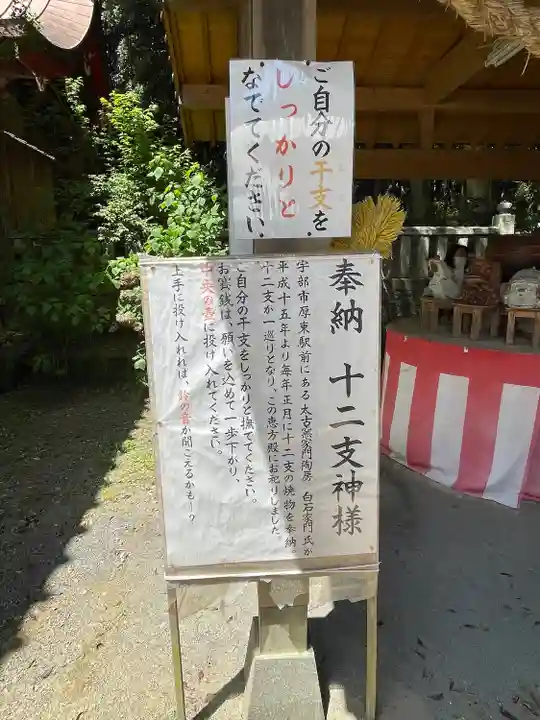 ご自分の干支を
しっかりと
なでてください。
奉納 十二支神様
宇部市厚東駅前にある 太古窯家門陶房 白石家門氏が
平成十五年より毎年正月に十二支の焼物を奉納。
十二支が一巡りとなり、この恵方殿にお祀りしました。
ご自分の干支をしっかりと撫でてください。
お賽銭は、願いを込めて一歩下がり、
中央の壺に投げ入れてください。
上手に投げ入れれば、鈴の音が聞こえるかも〜?